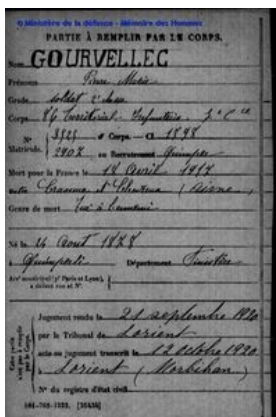 © Ministère de la défense - Mémoire des Hommes
PARTIE À REMPLIR PAR LE CORPS.
Nom GOURVELLEC
Prénoms Pierre Marie
Grade soldat 2e classe
Corps 86 Territorial Infanterie
N° 3525 au Corps. — Cl. 1898
Matricule. 2907 au Recrutement Quimper
Mort pour la France le 18 Avril 1917
entre et (Aisne)
Genre de mort Tué à l'ennemi
Né le 24 Août 1878
à Quimperlé Département Finistère
Arr municipal (p' Paris et Lyon),
à défaut rue et N°.
Cette partie n'est pas à remplir par le Corps.
Jugement rendu le 21 septembre 1920
par le Tribunal de Lorient
acte ou jugement transcrit le 12 octobre 1920
à Lorient (Morbihan)
N° du registre d'état civil